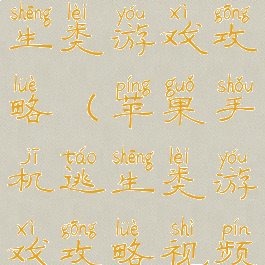 shēng lèi yóu xì gōng
生类游戏攻
lüè píng guǒ shǒu
略（苹果手
jī táo shēng lèi yóu
机逃生类游
xì gōng lüè shì pín
戏攻略视频